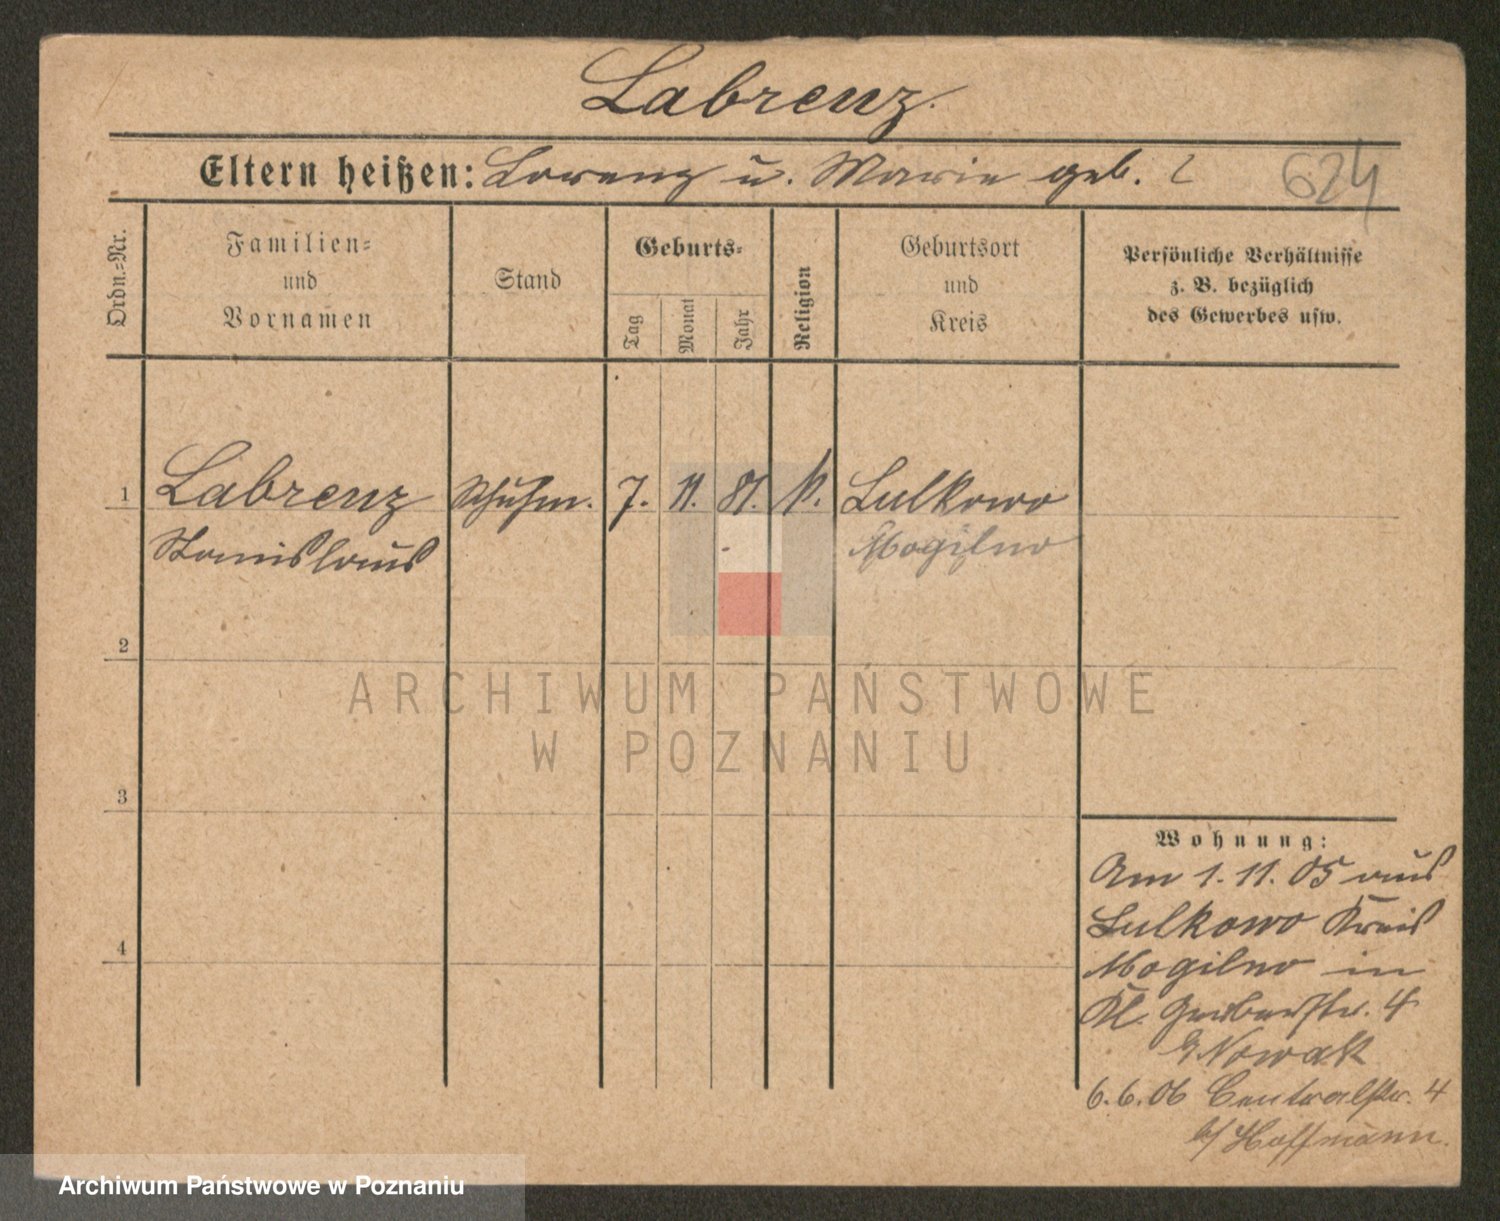 Labrenz.
Eltern heißen: Lorenz u. Marie geb. ?
624
Ordn.=Nr.
Familien=
und
Vornamen
Stand
Geburts=
Tag
Monat
Jahr
Religion
Geburtsort
und
Kreis
Persönliche Verhältnisse
z. B. bezüglich
des Gewerbes usw.
1 Labrenz Schuhm. 7. 11. 81. k. Lulkowo
Stanislaus Mogilno
2
3
4
Wohnung:
Am 1.11.05 aus
Lulkowo Kreis
Mogilno in
Kl. Gerberstr. 4
b/ Nowak
6.6.06 Centralstr. 4
b/ Hoffmann.
ARCHIWUM PAŃSTWOWE
W POZNANIU
Archiwum Państwowe w Poznaniu